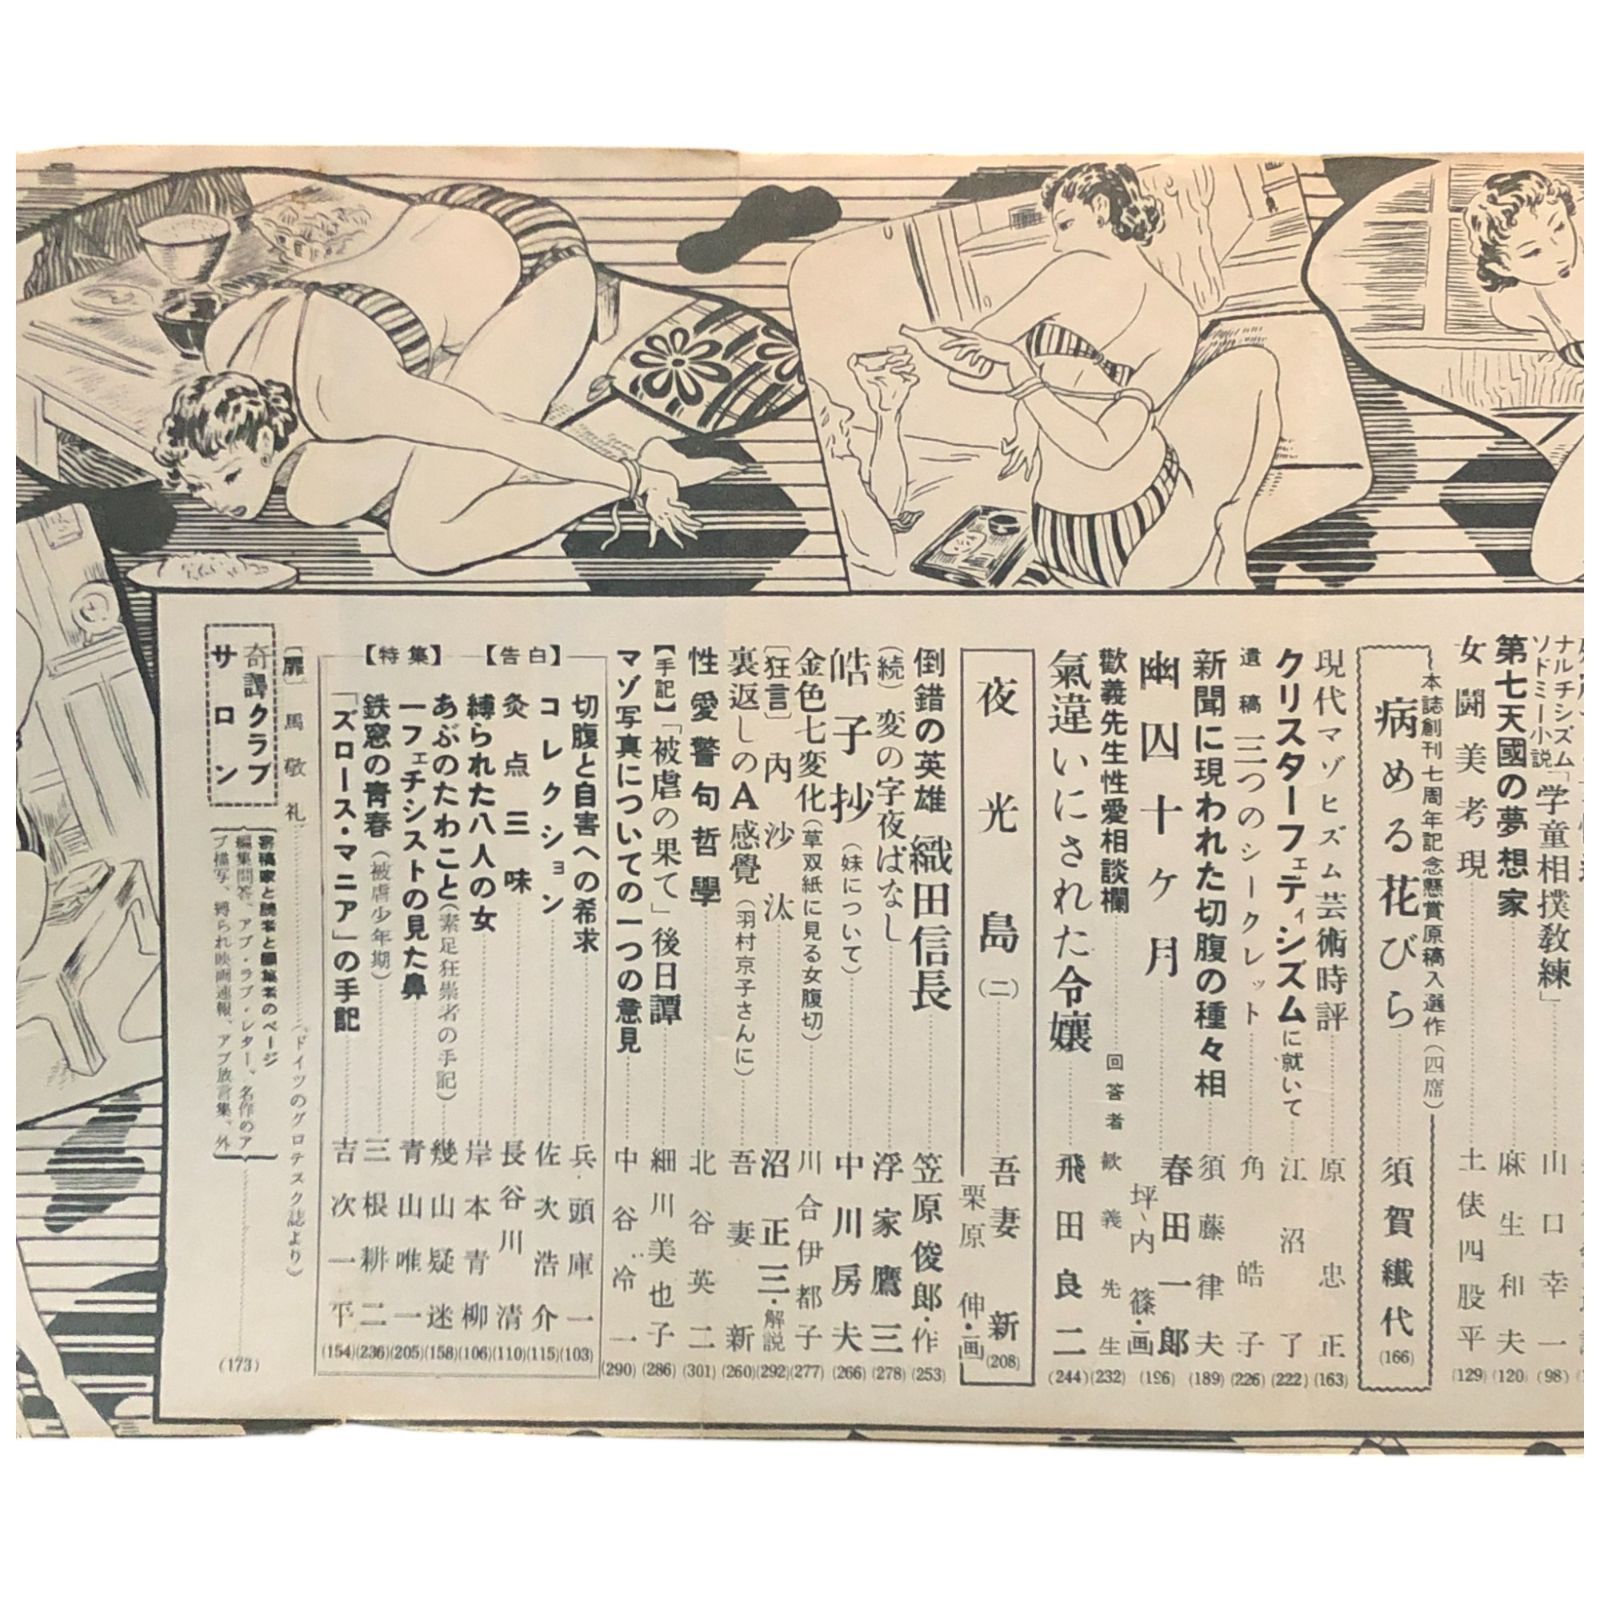 ナルチシズム
ソドミー小説「学童相撲教練」 山口幸一 (98)
第七天國の夢想家 麻生和夫 (120)
女闘美考現 土俵四股平 (129)
本誌創刊七周年記念懸賞原稿入選作(四席)
病める花びら 須賀纖代 (166)
現代マゾヒズム芸術時評 原忠正 (163)
クリスターフェティシズムに就いて 江沼了 (222)
遺稿 三つのシークレット 角皓子 (226)
新聞に現われた切腹の種々相 須藤律夫 (189)
幽囚十ヶ月 春田一郎 坪内篠・画 (196)
歡義先生性愛相談欄 回答者 歓義先生 (232)
氣違いにされた令嬢 飛田良二 (244)
夜光島(二) 吾妻新 (208)
栗原伸・画
倒錯の英雄 織田信長 笠原俊郎・作 (253)
(続)変の字夜ばなし 浮家鷹三 (278)
皓子抄(妹について) 中川房夫 (266)
金色七変化(草双紙に見る女腹切) 川合伊都子 (277)
[狂言]内沙汰 沼正三・解説 (292)
裏返しのA感覺(羽村京子さんに) 吾妻新 (260)
性愛警句哲學 北谷英二 (301)
【手記】「被虐の果て」後日譚 細川美也子 (286)
マゾ写真についての一つの意見 中谷冷一 (290)
切腹と自害への希求 兵頭庫一 (103)
【告白】
コレクション 佐次浩介 (115)
灸点三味 長谷川清 (110)
縛られた八人の女 岸本青柳 (106)
【特集】
あぶのたわこと(素足狂崇者の手記) 幾山疑迷 (158)
一フェチシストの見た鼻 青山唯一 (205)
鉄窓の青春(被虐少年期) 三根耕二 (236)
「ズロース・マニア」の手記 吉次一平 (154)
[扉] 馬敬礼 (ドイツのグロテスク誌より)
奇譚クラブ
サロン
寄稿家と読者と編集者のページ
編集問答、アブ・ラブ・レター、名作のア
ブ描写、縛られ映画速報、アブ放言集、外
(173)